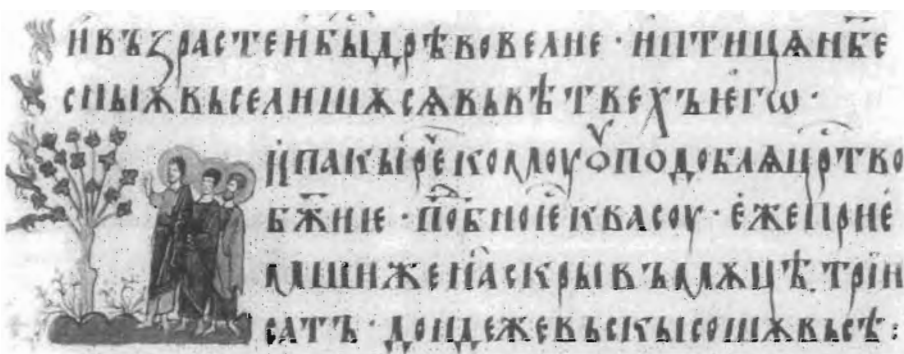 и въꙁрасте и бы дрѣво велие · и птицѧ нб҃е
сныѫ вьселишѫ сѧ вь вѣтвехъ его ·
и пакы ре҃ комоу оуподоблѧ цр҃тво
бж҃ие · пѡбно е квасоу · еже прие
мши жена скры въ мѫцѣ три
сатъ · дондеже вьскысошѫ вьсѣ :